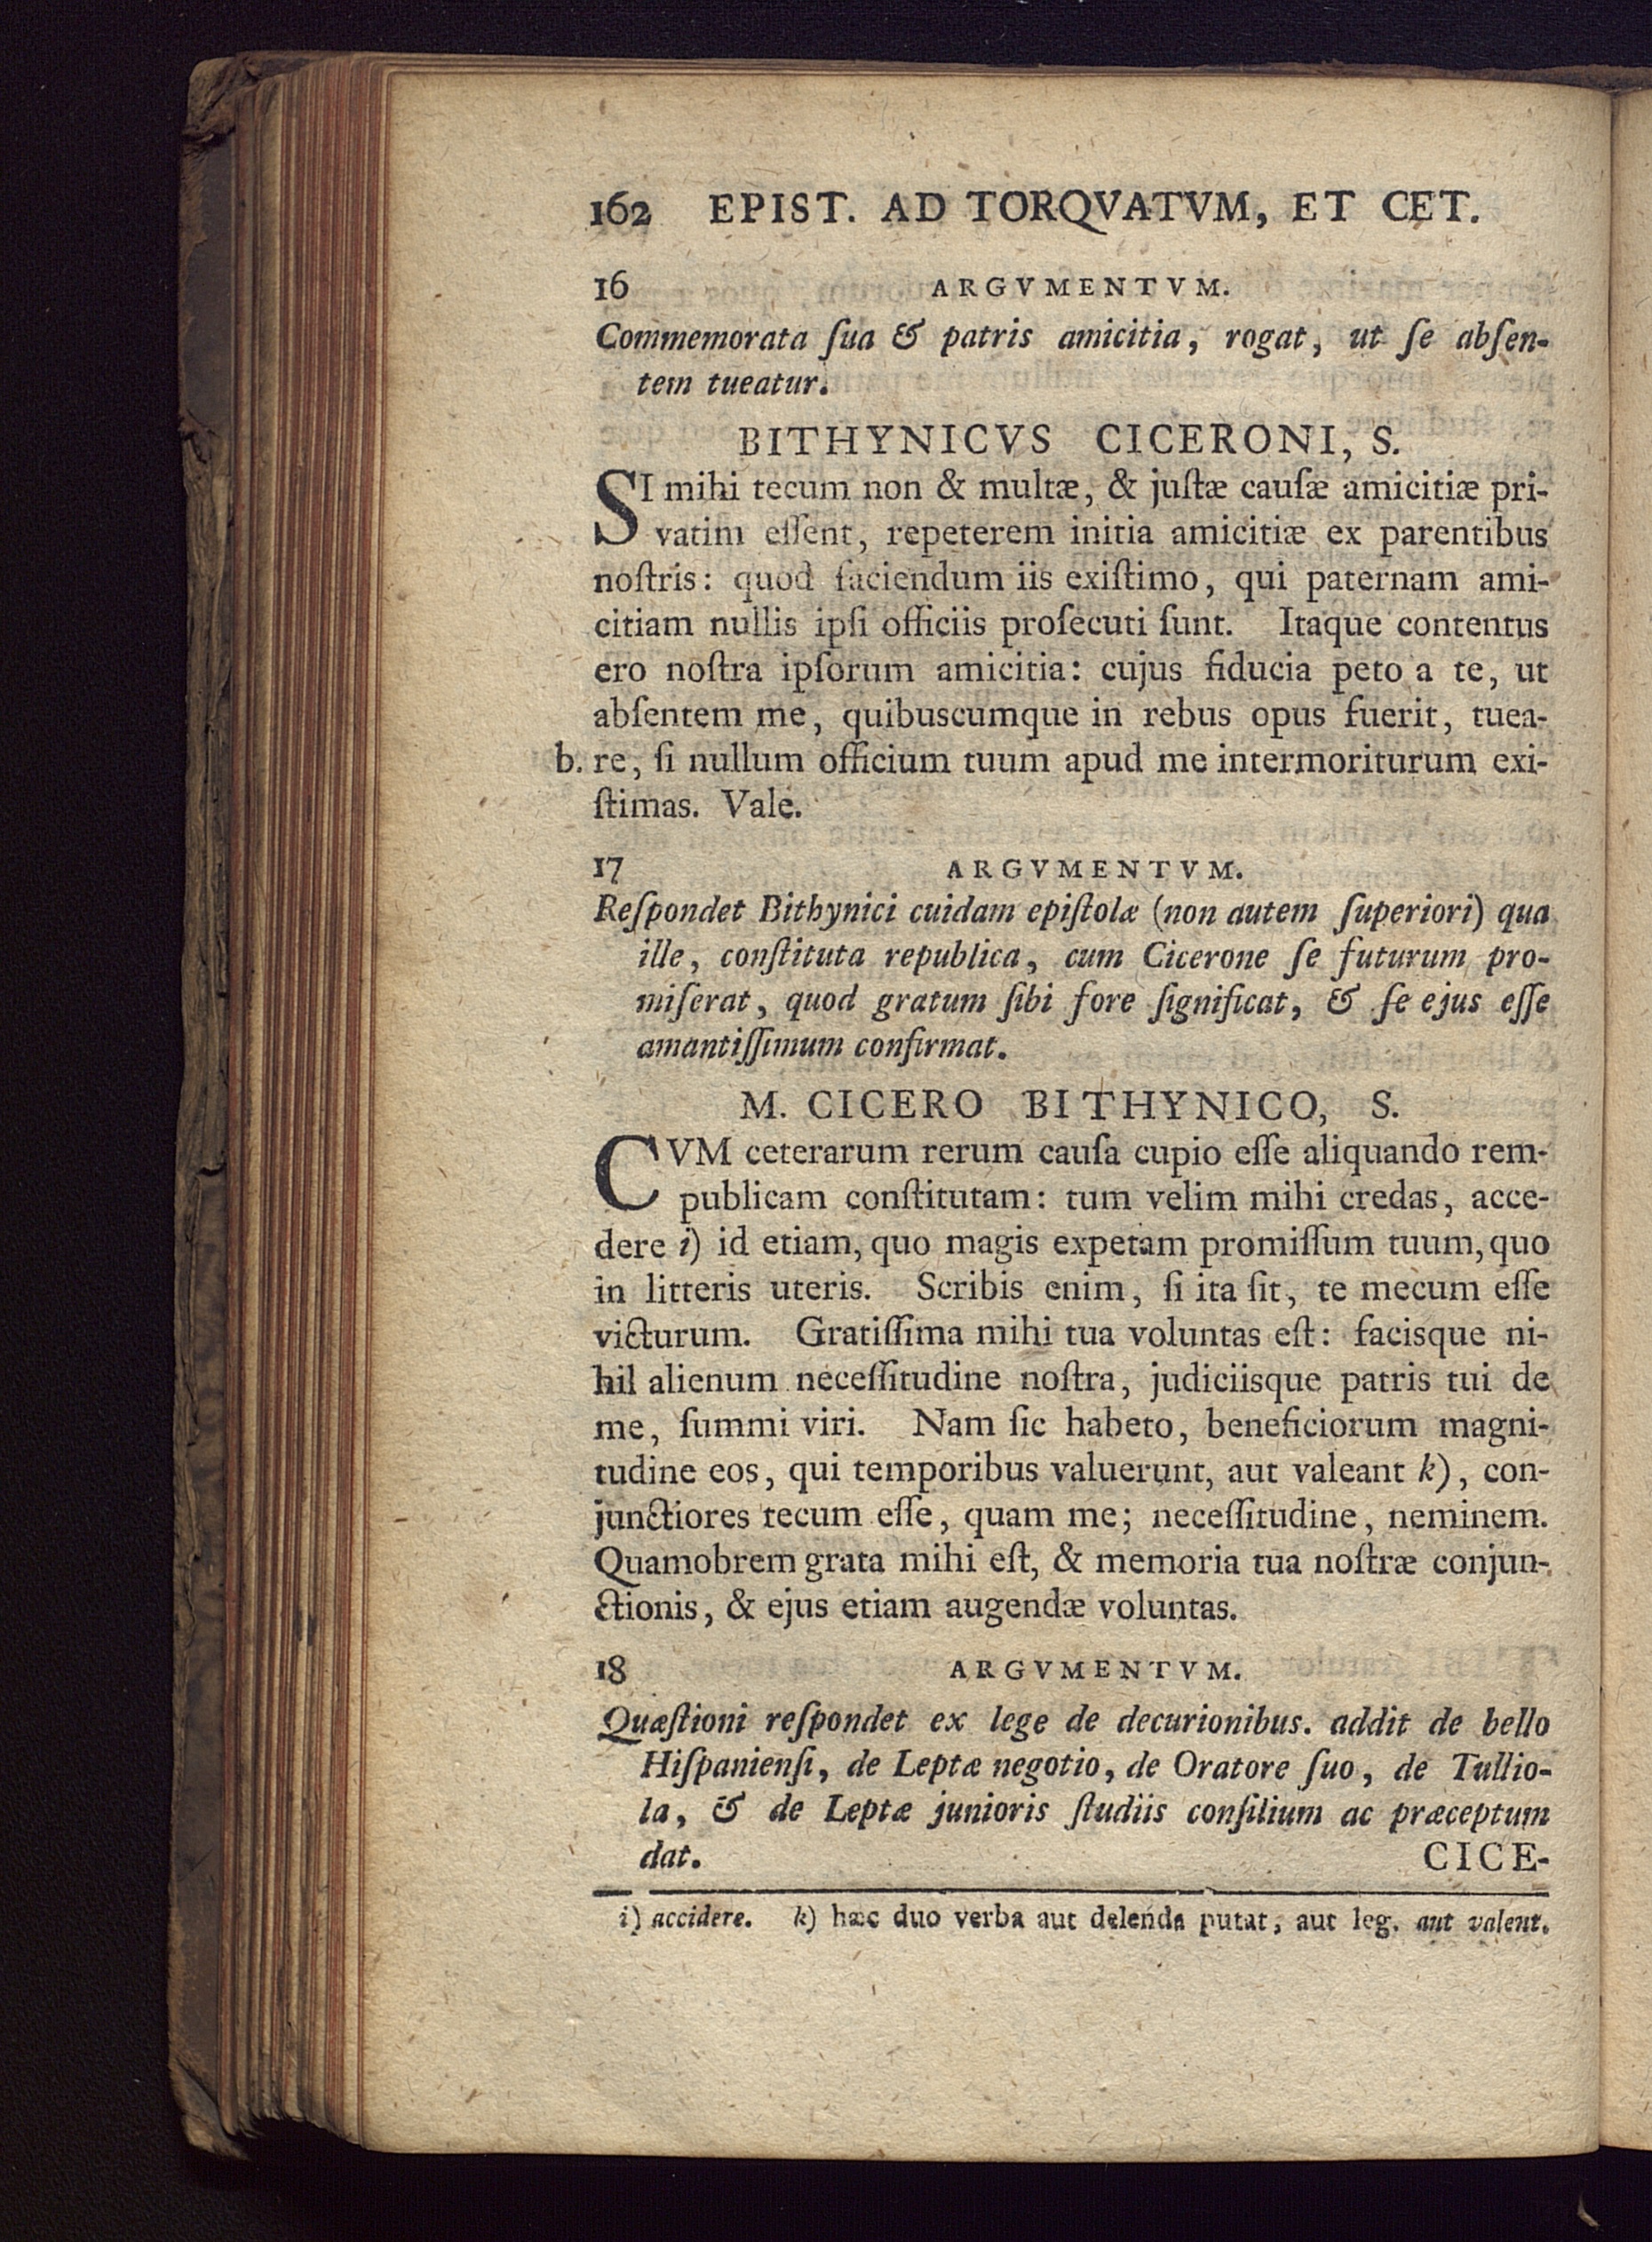 162 EPIST. AD TORQVATVM, ET CET.
16 ARGVMENTVM.
Commemorata ſua & patris amicitia, rogat, ut ſe abſen-
tem tueatur.
BITHYNICVS CICERONI, S.
SI mihi tecum non & multæ, & juſtæ cauſæ amicitiæ pri-
vatim eſſent, repeterem initia amicitiæ ex parentibus
noſtris: quod faciendum iis exiſtimo, qui paternam ami-
citiam nullis ipſi officiis proſecuti ſunt. Itaque contentus
ero noſtra ipſorum amicitia: cujus fiducia peto a te, ut
abſentem me, quibuscumque in rebus opus fuerit, tuea-
b. re, ſi nullum officium tuum apud me intermoriturum exi-
ſtimas. Vale.
17 ARGVMENTVM.
Reſpondet Bithynici cuidam epiſtolæ (non autem ſuperiori) qua
ille, conſtituta republica, cum Cicerone ſe futurum pro-
miſerat, quod gratum ſibi fore ſignificat, & ſe ejus eſſe
amantiſſimum confirmat.
M. CICERO BITHYNICO, S.
CVM ceterarum rerum cauſa cupio eſſe aliquando rem-
publicam conſtitutam: tum velim mihi credas, acce-
dere i) id etiam, quo magis expetam promiſſum tuum, quo
in litteris uteris. Scribis enim, ſi ita ſit, te mecum eſſe
victurum. Gratiſſima mihi tua voluntas eſt: facisque ni-
hil alienum neceſſitudine noſtra, judiciisque patris tui de
me, ſummi viri. Nam ſic habeto, beneficiorum magni-
tudine eos, qui temporibus valuerunt, aut valeant k), con-
junctiores tecum eſſe, quam me; neceſſitudine, neminem.
Quamobrem grata mihi eſt, & memoria tua noſtræ conjun-
ctionis, & ejus etiam augendæ voluntas.
18 ARGVMENTVM.
Quæſtioni reſpondet ex lege de decurionibus. addit de bello
Hiſpanienſi, de Leptæ negotio, de Oratore ſuo, de Tullio-
la, & de Leptæ junioris ſtudiis conſilium ac præceptum
dat. CICE-
i) accidere. k) hæc duo verba aut delenda putat, aut leg. aut valent.